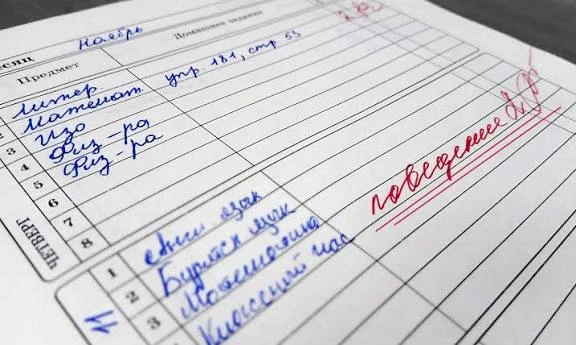 месяц Ноябрь
Предмет Домашнее задание
Литер.
2 Математ. упр. 181, стр. 53
3 Изо
4 Физ-ра
5 Физ-ра
6
7
8
поведение
ЧЕТВЕРГ
1 Англ язык
2 Бурятск язык
3 Математика
Классный час
11